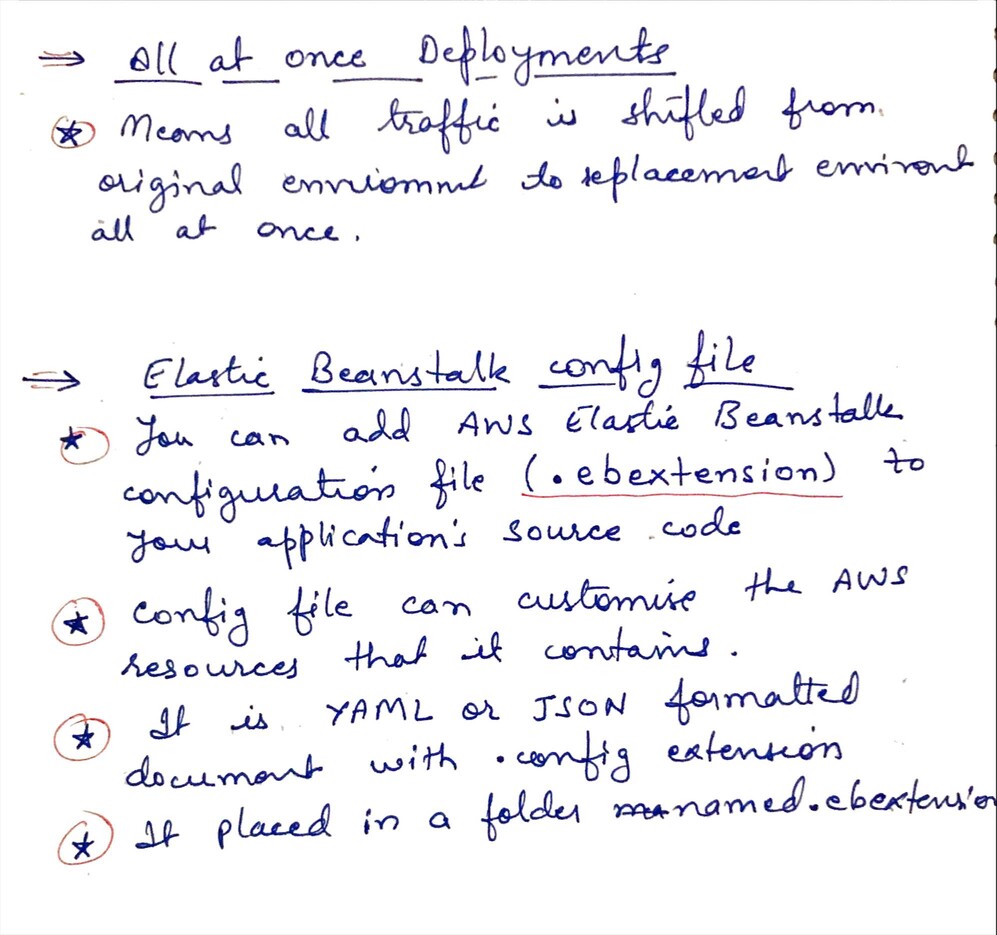 ⇒ All at once Deployments
★ Means all traffic is shifted from
original enviomnt to replacement environt
all at once.
⇒ Elastic Beanstalk config file
★ You can add AWS Elastic Beanstalk
configuration file (.ebextension) to
your application's source code
★ config file can customise the AWS
resources that it contains.
★ It is YAML or JSON formatted
document with .config extension
★ It placed in a folder named .ebextension